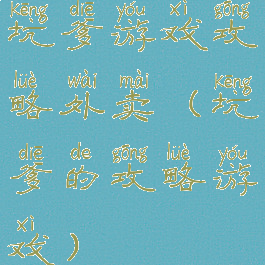 kēng diē yóu xì gōng
坑爹游戏攻
lüè wài mài kēng
略外卖（坑
diē de gōng lüè yóu
爹的攻略游
xì
戏）